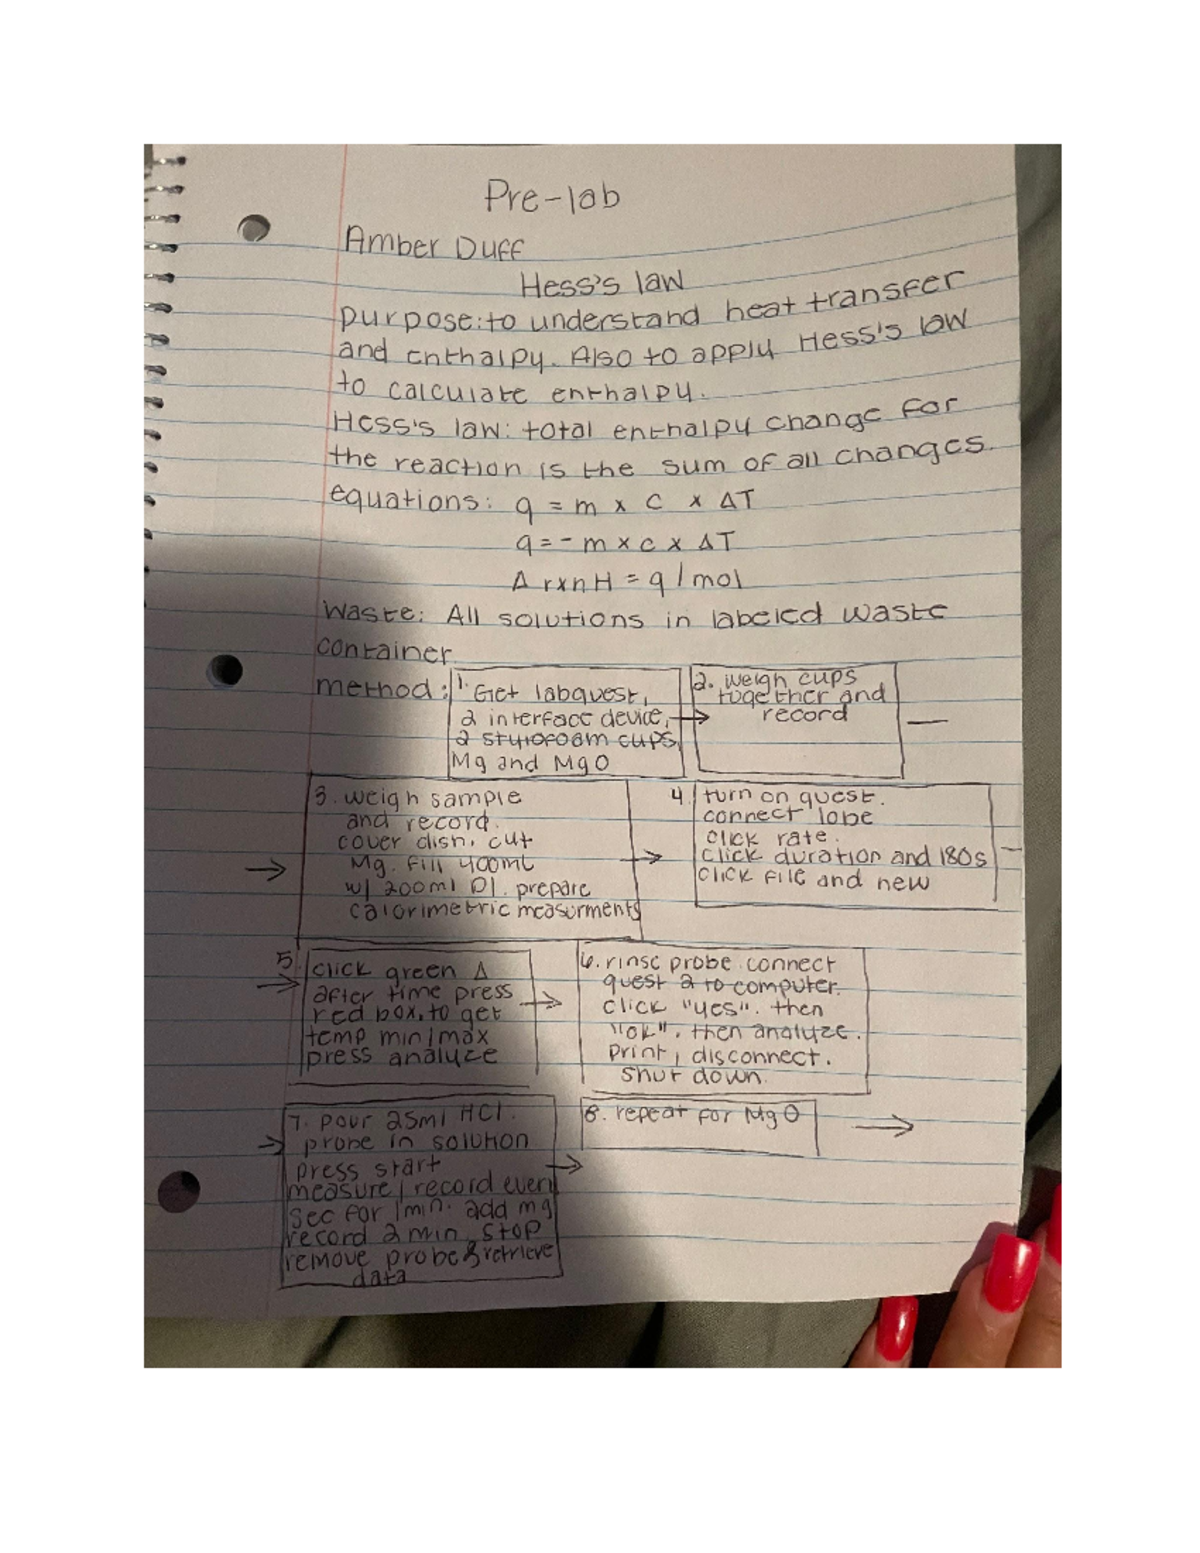 Pre-lab
Amber Duff
Hess's law
purpose: to understand heat transfer
and enthalpy. Also to apply Hess's law
to calculate enthalpy.
Hess's law: total enthalpy change for
the reaction is the sum of all changes.
equations: q = m x c x ΔT
q = - m x c x ΔT
Δ rxn H = q / mol
Waste: All solutions in labeled waste
container
method:
1. Get labquest,
2 interface device,
2 styrofoam cups,
Mg and MgO
2. weigh cups
together and
record
3. weigh sample
and record.
cover dish. cut
Mg. Fill 400ml
w/ 200ml DI. prepare
calorimetric measurments
4. turn on quest.
connect lobe
click rate.
click duration and 180s
click file and new
5. click green Δ
after time press
red box, to get
temp min/max
press analyze
6. rinse probe. connect
quest 2 to computer.
click "yes". then
"ok". then analyze.
print, disconnect.
shut down.
7. pour 25ml HCl.
probe in solution
press start
measure / record even
sec for 1 min. add mg
record 2 min. stop
remove probe & retrieve
data
8. repeat for MgO